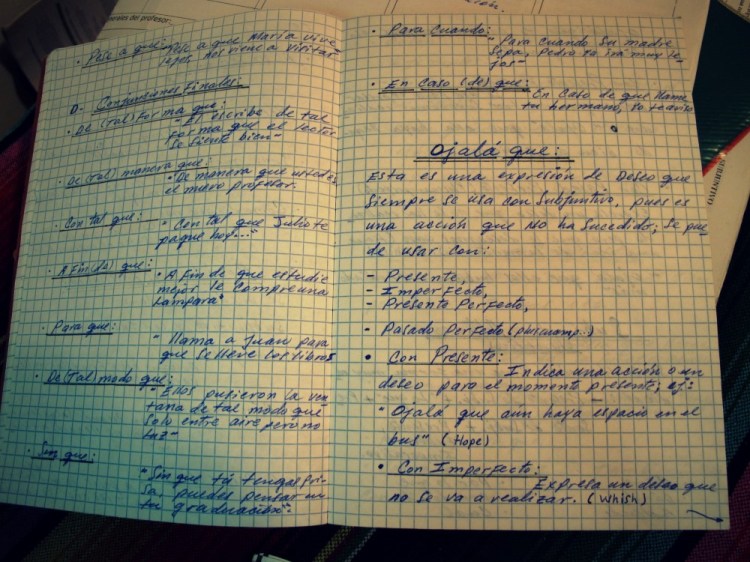 · Pese a que: "Pese a que María vive
lejos, nos viene a visitar"
D- Conjunciones Finales:
· De (tal) forma que:
"El escribe de tal
forma que el lector
se siente bien"
· De (tal) manera que:
"De manera que usted es
el nuevo profesor.
· Con tal que:
"Con tal que Julio te
pague hoy..."
· A Fin (de) que:
"A fin de que estudie
mejor le compre una
Lámpara"
· Para que:
"llama a Juan para
que se lleve los libros
· De (tal) modo que:
"Ellos pusieron la ven-
tana de tal modo que
solo entre aire pero no
luz"
· Sin que:
"Sin que tú tengas pri-
sa, puedes pensar en
tu graduación".
· Para Cuando:
"Para cuando su madre
sepa, Pedro ya irá muy le-
jos"
· En Caso (de) que:
"En Caso de que llame
tu hermano, yo
Ojalá que:
Esta es una expresión de Deseo que
siempre se usa con Subjuntivo, pues es
una acción que NO ha sucedido; Se pue-
de usar con:
- Presente,
- Imperfecto,
- Presente Perfecto,
- Pasado Perfecto (pluscuamp.)
• Con Presente:
Indica una acción o un
deseo para el momento presente; ej:
"Ojalá que aun haya espacio en el
bus" (Hope)
• Con Imperfecto:
Expresa un deseo que
no se va a realizar. (Whish)
SUBJUNTIVO